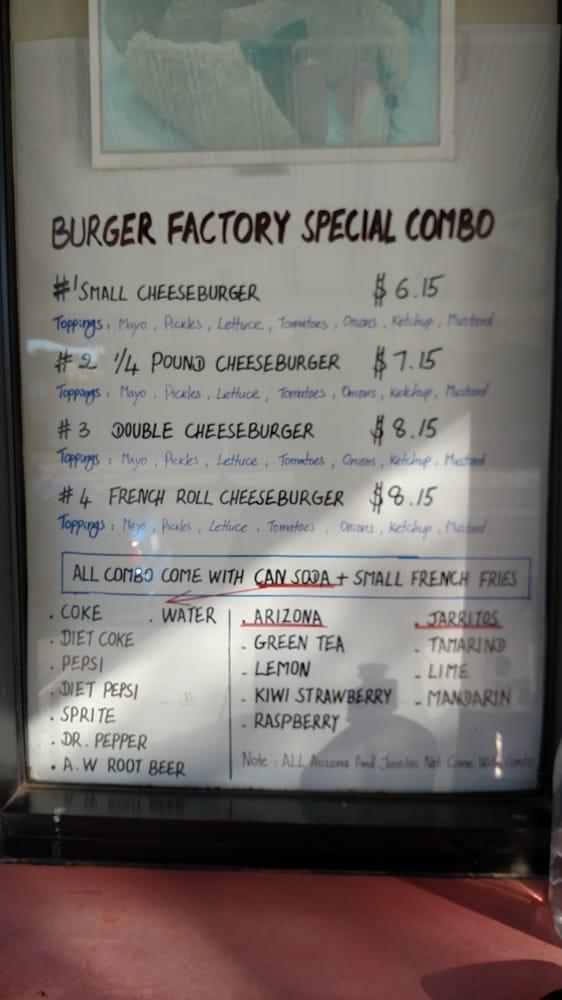 BURGER FACTORY SPECIAL COMBO
#1 SMALL CHEESEBURGER $6.15
Toppings: Mayo, Pickles, Lettuce, Tomatoes, Onions, Ketchup, Mustard
#2 1/4 POUND CHEESEBURGER $7.15
Toppings: Mayo, Pickles, Lettuce, Tomatoes, Onions, Ketchup, Mustard
#3 DOUBLE CHEESEBURGER $8.15
Toppings: Mayo, Pickles, Lettuce, Tomatoes, Onions, Ketchup, Mustard
#4 FRENCH ROLL CHEESEBURGER $8.15
Toppings: Mayo, Pickles, Lettuce, Tomatoes, Onions, Ketchup, Mustard
ALL COMBO COME WITH CAN SODA + SMALL FRENCH FRIES
. COKE
. DIET COKE
. PEPSI
. DIET PEPSI
. SPRITE
. DR. PEPPER
. A.W ROOT BEER
. WATER
. ARIZONA
- GREEN TEA
- LEMON
- KIWI STRAWBERRY
- RASPBERRY
. JARRITOS
- TAMARIND
- LIME
- MANDARIN
Note: ALL Arizona And Jarritos Not Come With Combo